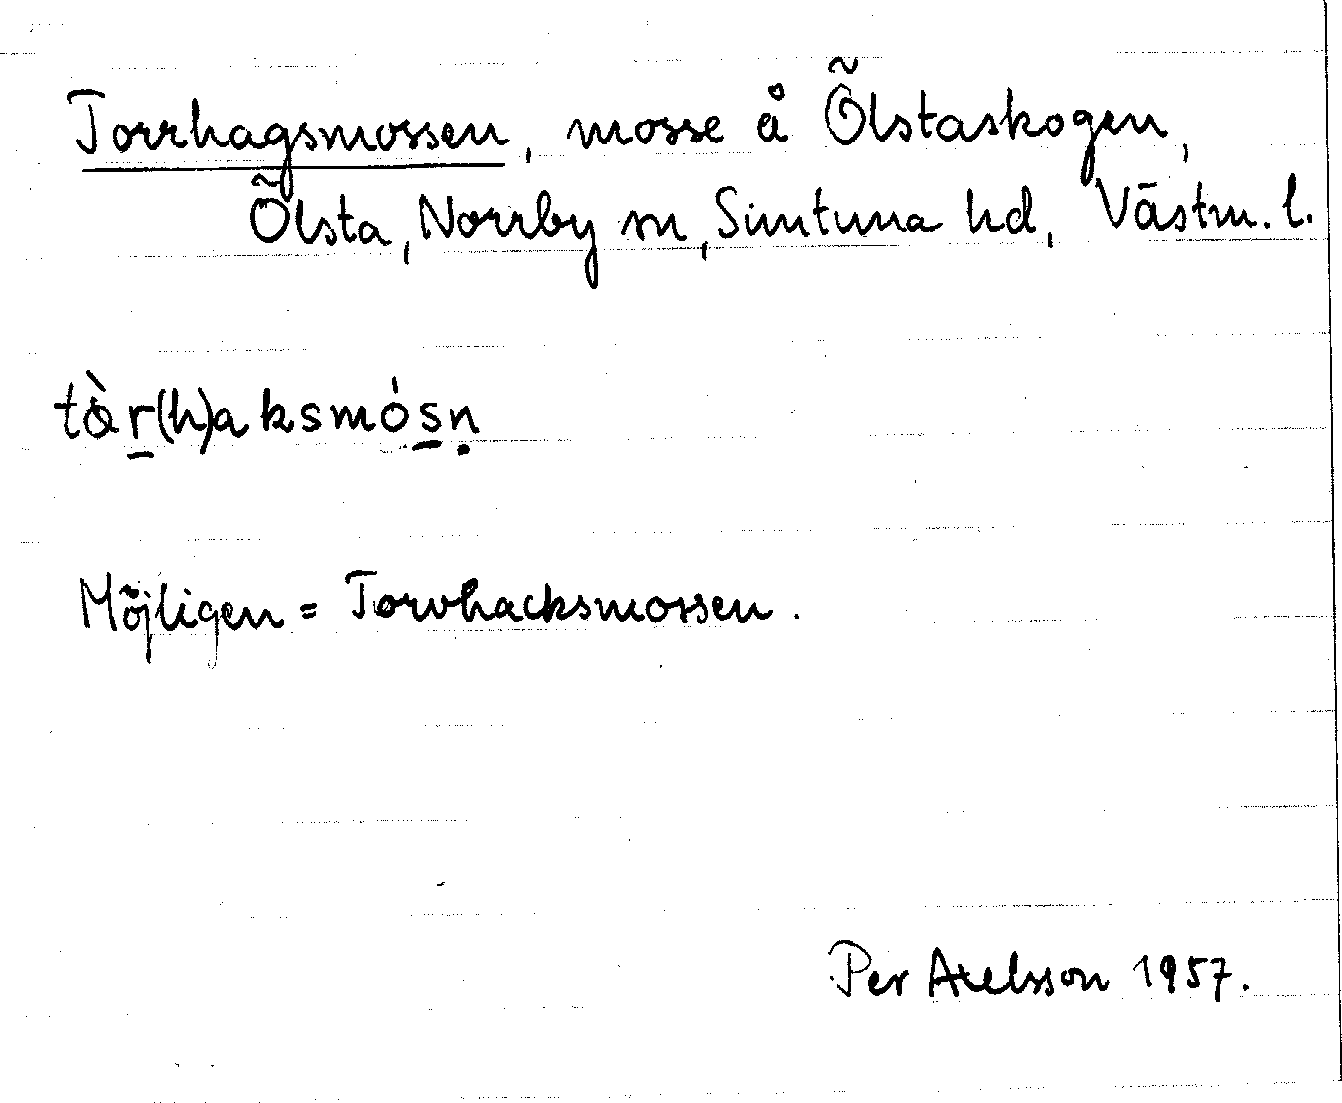 Torrhagsmossen, mosse å Ölstaskogen,
Ölsta, Norrby sn, Simtuna hd, Västm. l.
tòr̲(h)aksmós̲ṇ
Möjligen = Torvhacksmossen.
Per Axelsson 1957.